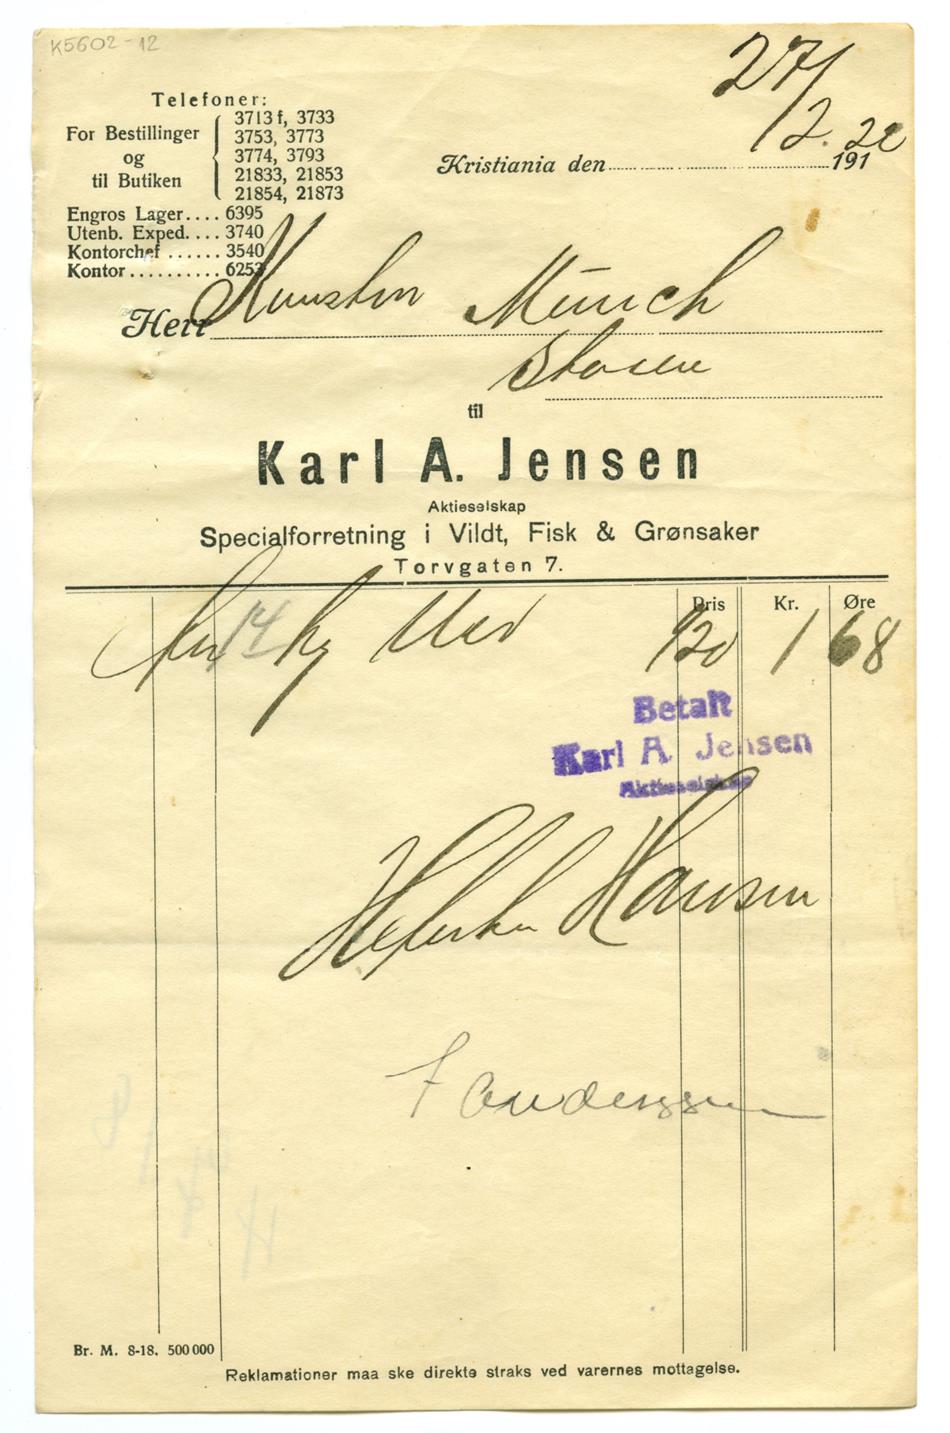 K5602-12
27/2. 22
Telefoner:
For Bestillinger og til Butiken
3713 f, 3733
3753, 3773
3774, 3793
21833, 21853
21854, 21873
Kristiania den 191
Engros Lager.... 6395
Utenb. Exped. ... 3740
Kontorchef ...... 3540
Kontor .......... 6253
Herr Munch
til
Karl A. Jensen
Aktieselskap
Specialforretning i Vildt, Fisk & Grønsaker
Torvgaten 7.
Pris Kr. Øre
14 kg 1 68
Betalt
Karl A. Jensen
Aktieselskap
Hansen
Br. M. 8-18. 500 000
Reklamationer maa ske direkte straks ved varernes mottagelse.